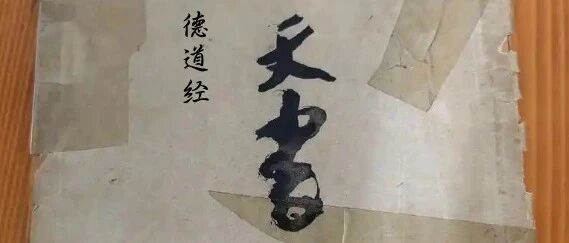 德道经
天书